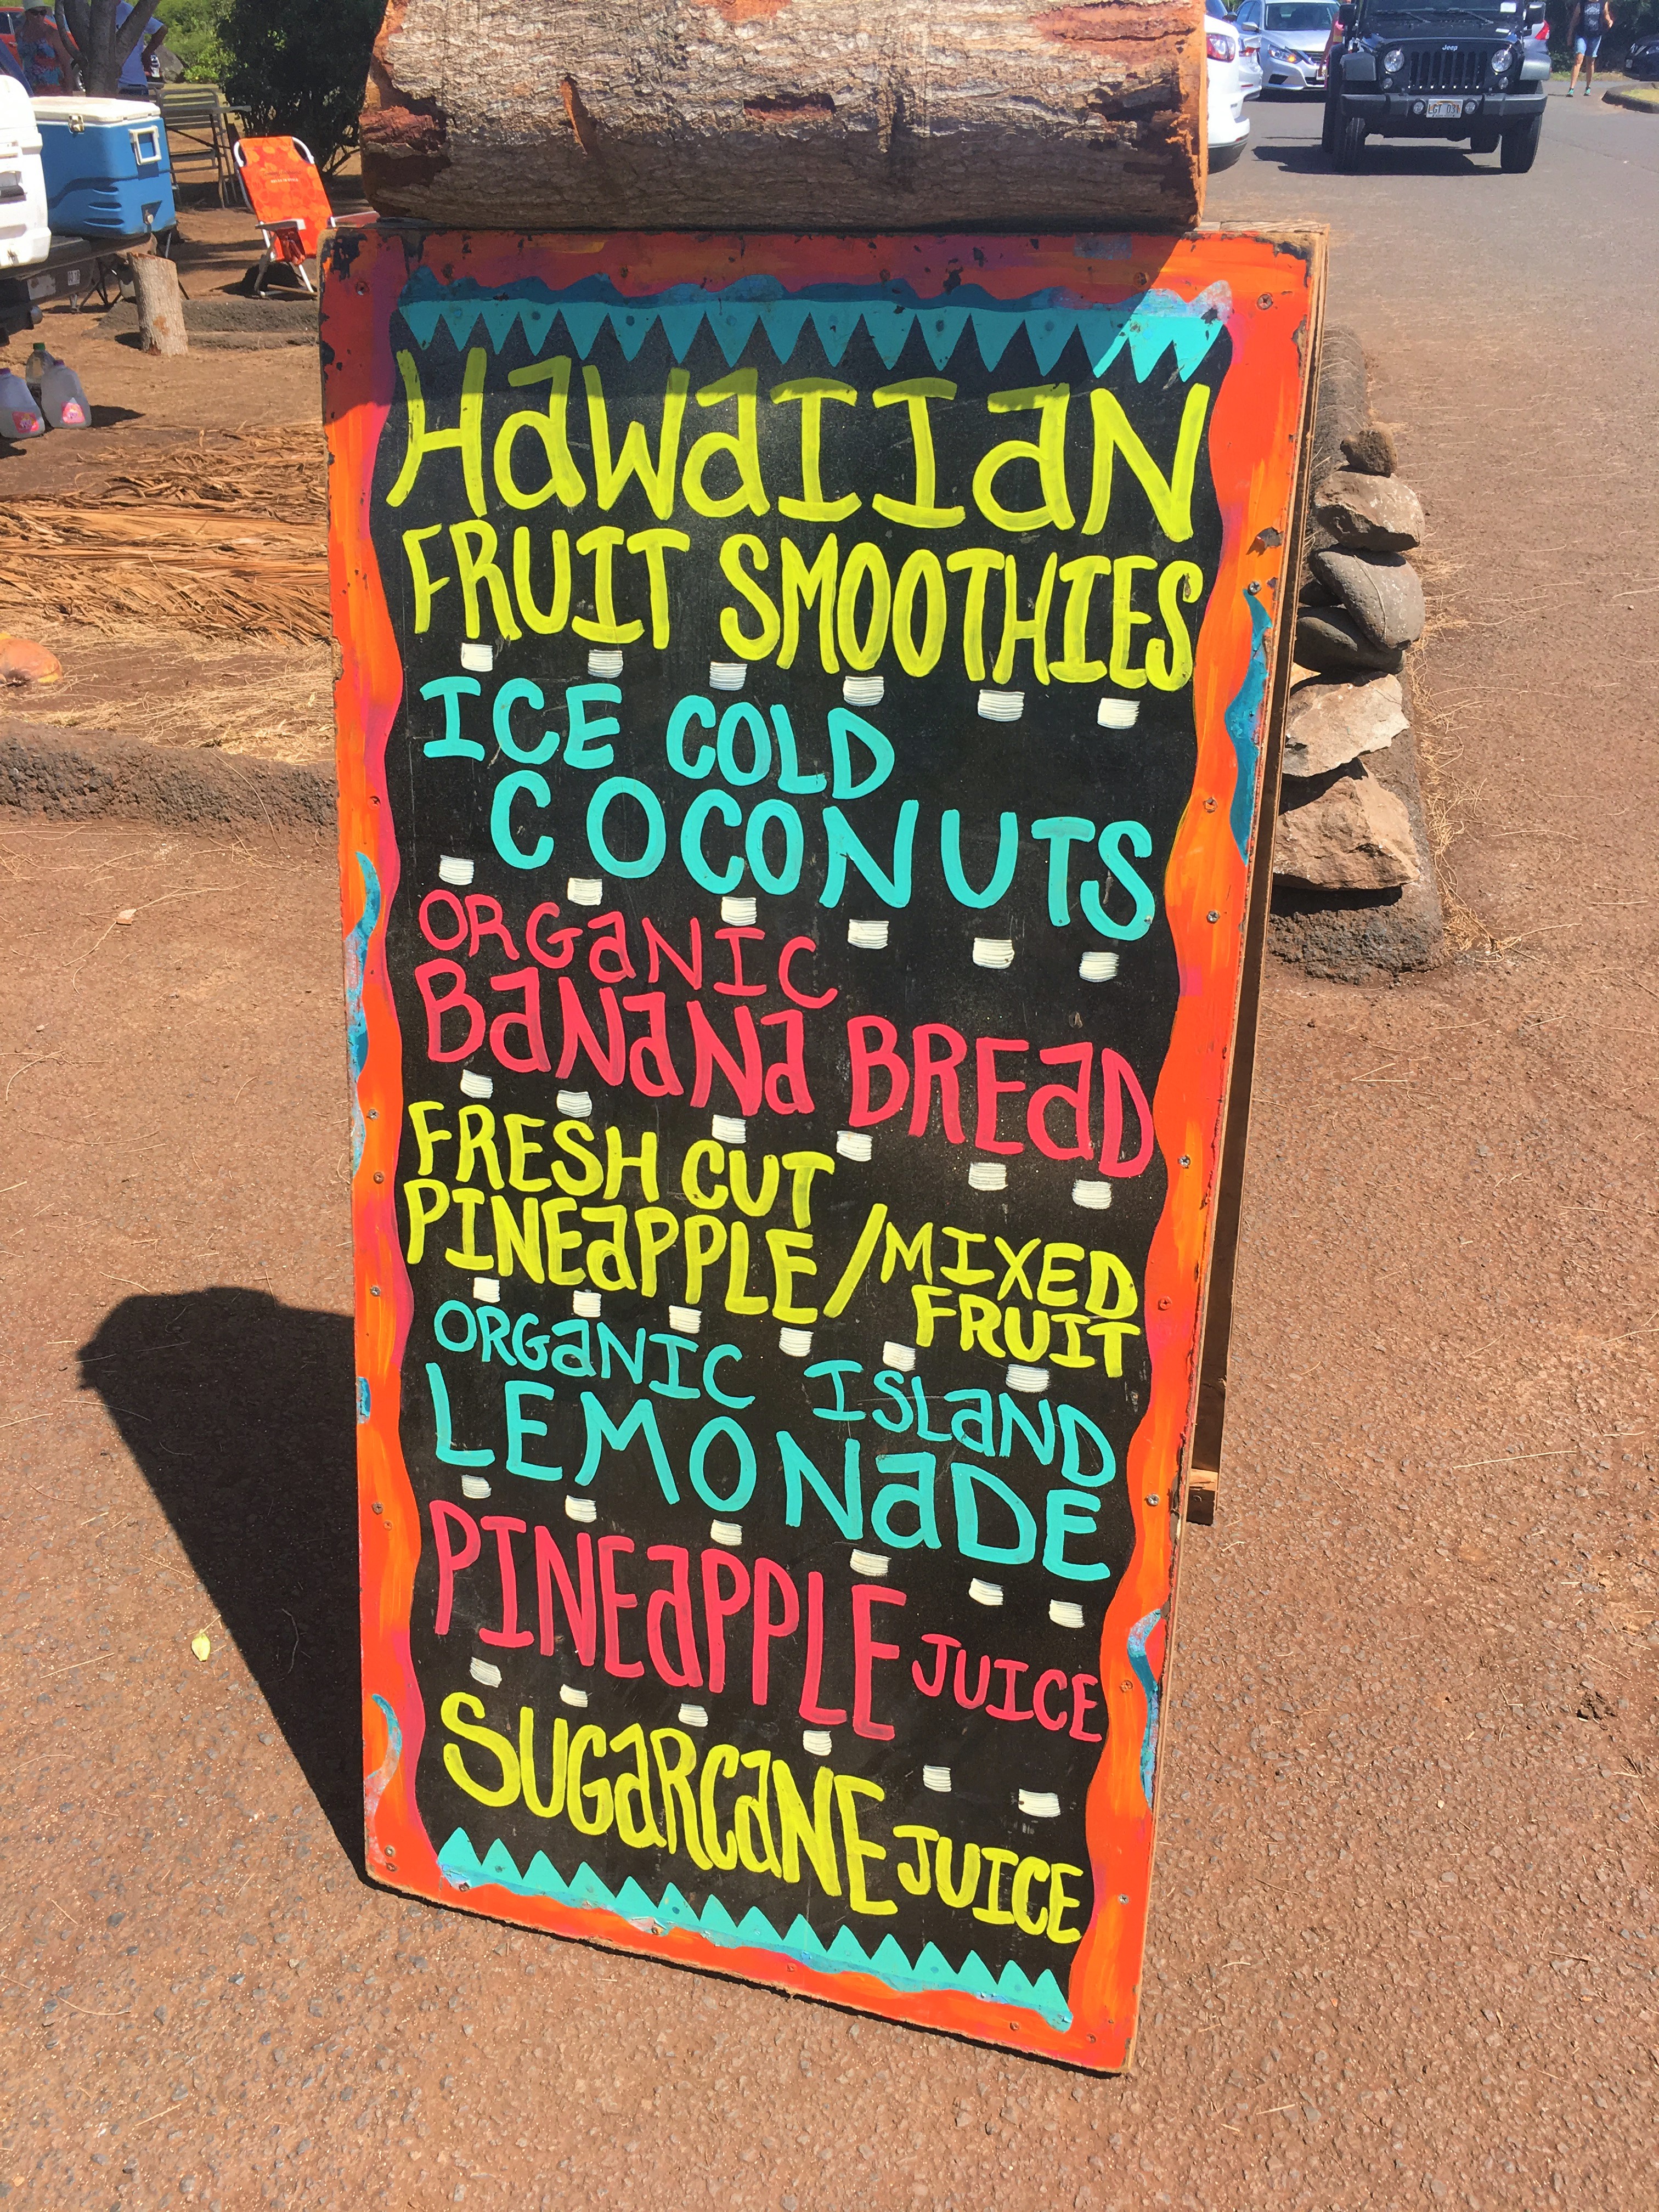 HaWaIIaN
FRUIT SMOOTHIES
ICE COLD
COCONUTS
ORGaNIC
BaNaNa BREaD
FRESH CUT
PINEaPPLE / MIXED
FRUIT
ORGaNIC ISLaND
LEMONaDE
PINEaPPLE JUICE
SUGaRCaNE JUICE
Jeep